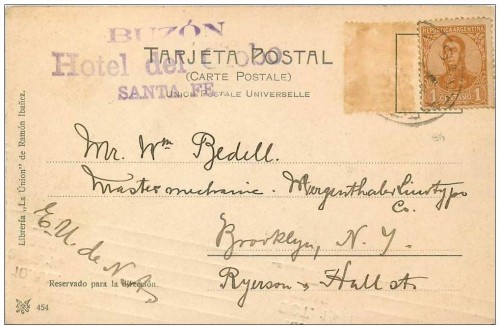 BUZÓN
Hotel del Globo
SANTA FE
TARJETA POSTAL
(CARTE POSTALE)
UNION POSTALE UNIVERSELLE
REPUBLICA ARGENTINA
1 1
Mr. Wm Bedell.
Master mechanic. Mergenthaler Linotype
Co.
Brooklyn, N. Y.
Ryerson + Hall st.
E. U. de N. A.
Librería „La Union" de Ramón Ibañez.
Reservado para la dirección.
454